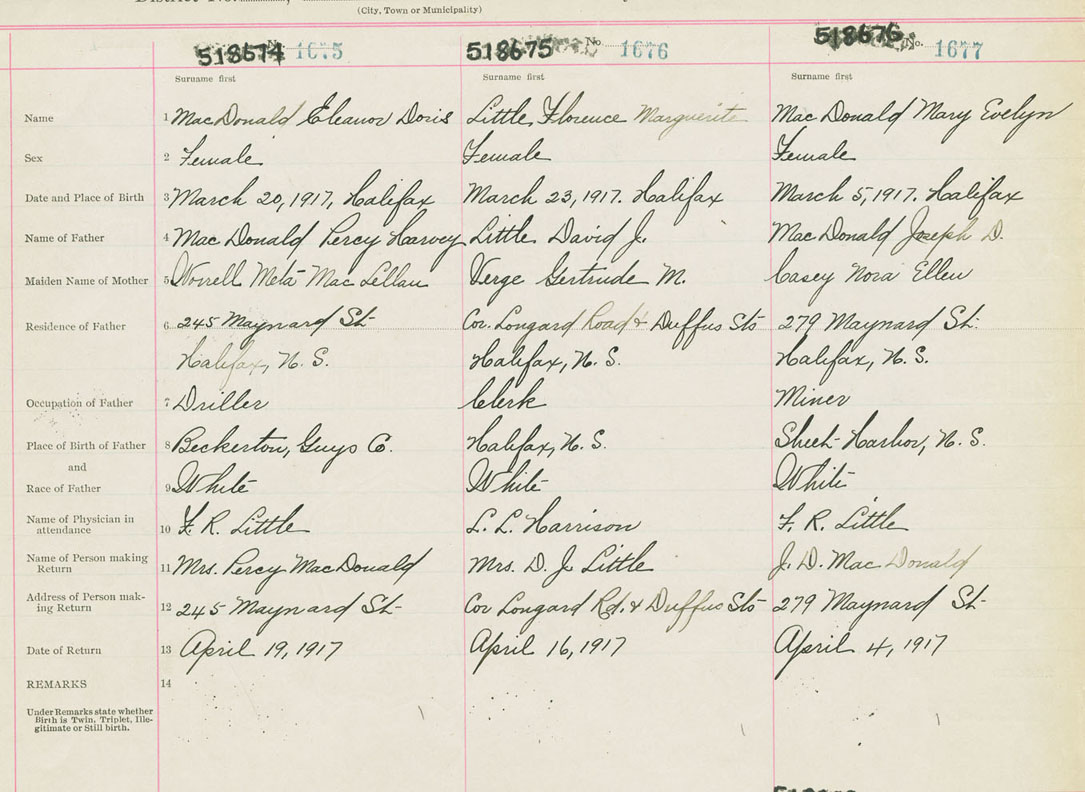 District No.
(City, Town or Municipality)
518674 No. 1675 518675 No. 1676 518676 No. 1677
Surname first Surname first Surname first
Name 1 MacDonald Eleanor Doris Little, Florence Marguerite MacDonald Mary Evelyn
Sex 2 Female Female Female
Date and Place of Birth 3 March 20, 1917, Halifax March 23, 1917. Halifax March 5, 1917. Halifax
Name of Father 4 MacDonald Percy Harvey Little David J. MacDonald Joseph D.
Maiden Name of Mother 5 Worrell Meta MacLellan Verge Gertrude M. Casey Nora Ellen
Residence of Father 6 245 Maynard St Cor. Longard Road & Duffus Sts 279 Maynard St.
Halifax, N. S. Halifax, N. S. Halifax, N. S.
Occupation of Father 7 Driller Clerk Miner
Place of Birth of Father 8 Beckerton, Guys Co. Halifax, N. S. Sheet Harbor, N. S.
and
Race of Father 9 White White White
Name of Physician in
attendance 10 F. R. Little L. L. Harrison F. R. Little
Name of Person making
Return 11 Mrs. Percy MacDonald Mrs. D. J. Little J. D. MacDonald
Address of Person mak-
ing Return 12 245 Maynard St Cor Longard Rd. & Duffus Sts 279 Maynard St
Date of Return 13 April 19, 1917 April 16, 1917 April 4, 1917
REMARKS 14
Under Remarks state whether
Birth is Twin, Triplet, Ille-
gitimate or Still birth.